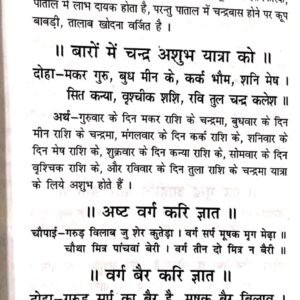 पाताल में लाभ दायक होता है, परन्तु पाताल में चन्द्रबास होने पर कूप
बाबड़ी, तालाब खोदना वर्जित है ।
॥ बारों में चन्द्र अशुभ यात्रा को ॥
दोहा–मकर गुरु, बुध मीन के, कर्क भौम, शनि मेष ।
सित कन्या, वृश्चीक शशि, रवि तुल चन्द्र कलेश ॥
अर्थ–गुरुवार के दिन मकर राशि के चन्द्रमा, बुधवार के दिन
मीन राशि के चन्द्रमा, मंगलवार के दिन कर्क राशि के, शनिवार के
दिन मेष राशि के, शुक्रवार के दिन कन्या राशि के, सोमवार के दिन
वृश्चिक राशि के, और रविवार के दिन तुला राशि के चन्द्रमा यात्रा
के लिये अशुभ होते हैं ।
॥ अष्ट वर्ग करि ज्ञात ॥
चौपाई–गरुड़ विलाव जु शेर कुतेड़ा । वर्ग सर्प मूषक मृग मेढ़ा ॥
चौथा मित्र पांचवा बेरी । वर्ग तीन दो मित्र न बैरी ॥
॥ वर्ग बैर करि ज्ञात ॥
दोहा–गरुड़ सर्प का बैर है, मूषक बैर बिलाव ।